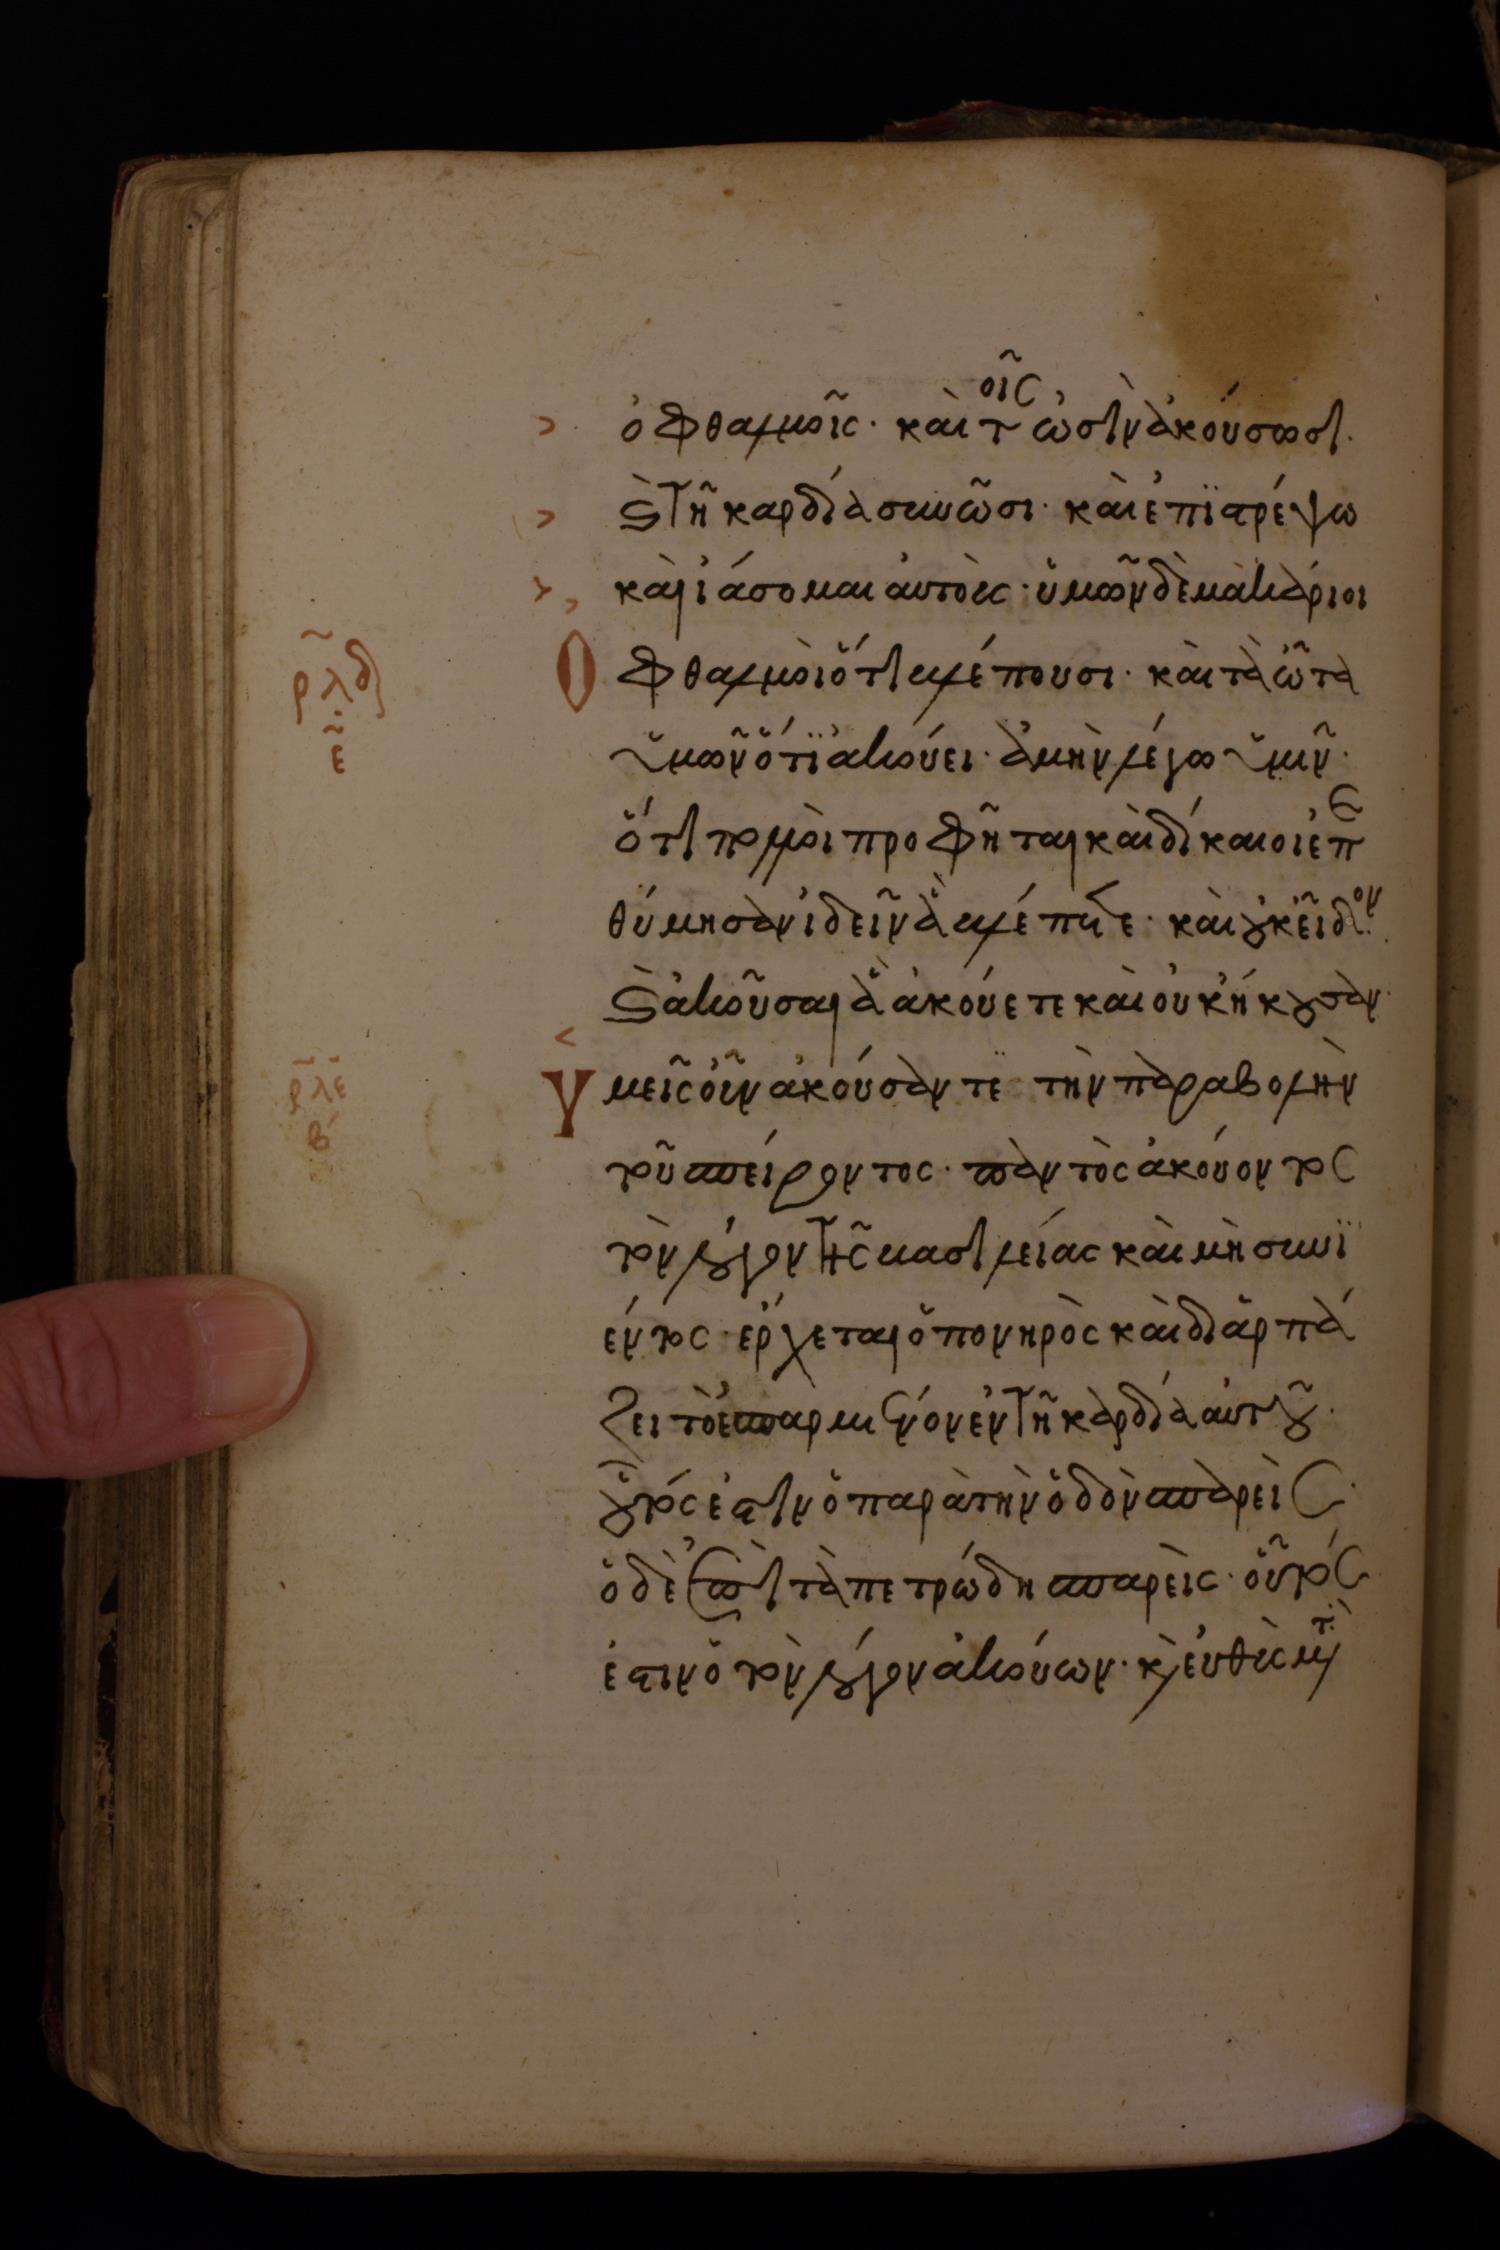 ὀφθαλμοῖς· καὶ τοῖς ὠσὶν ἀκούσωσι.
καὶ τῆ καρδία συνῶσι· καὶ ἐπϊστρέψω
καὶ ἰάσομαι αὐτοὺς· ὑμῶν δὲ μακάριοι
ρλδ Ὀφθαλμοὶ ὅτι βλέπουσι· καὶ τὰ ὦτα
ε ὑμῶν ὅτϊ ἀκούει· ἀμὴν λέγω ὑμῖν·
ὅτι πολλοὶ προφῆται καὶ δίκαιοι ἐπε
θύμησαν ἰδεῖν ἃ βλέπετε· καὶ οὐκ εἶδον·
καὶ ἀκοῦσαι ἃ ἀκούετε καὶ οὐκ ἤκουσαν·
ρλε Ὑμεῖς οὖν ἀκούσαντε τὴν παραβολὴν
β τοῦ σπείροντος· παντὸς ἀκούοντος
τὸν λόγον τῆς βασιλείας καὶ μὴ συνϊ
έντος· ἔρχεται ὁ πονηρὸς καὶ διαρπά
ζει τὸ ἐσπαρμένον ἐν τῆ καρδία αὐτοῦ·
οὗτός ἐστιν ὁ παρὰ τὴν ὁδὸν σπαρείς·
ὁ δὲ ἐπὶ τὰ πετρώδη σπαρεὶς· οὗτός
ἐστιν ὁ τὸν λόγον ἀκούων· καὶ εὐθὺς μετὰ